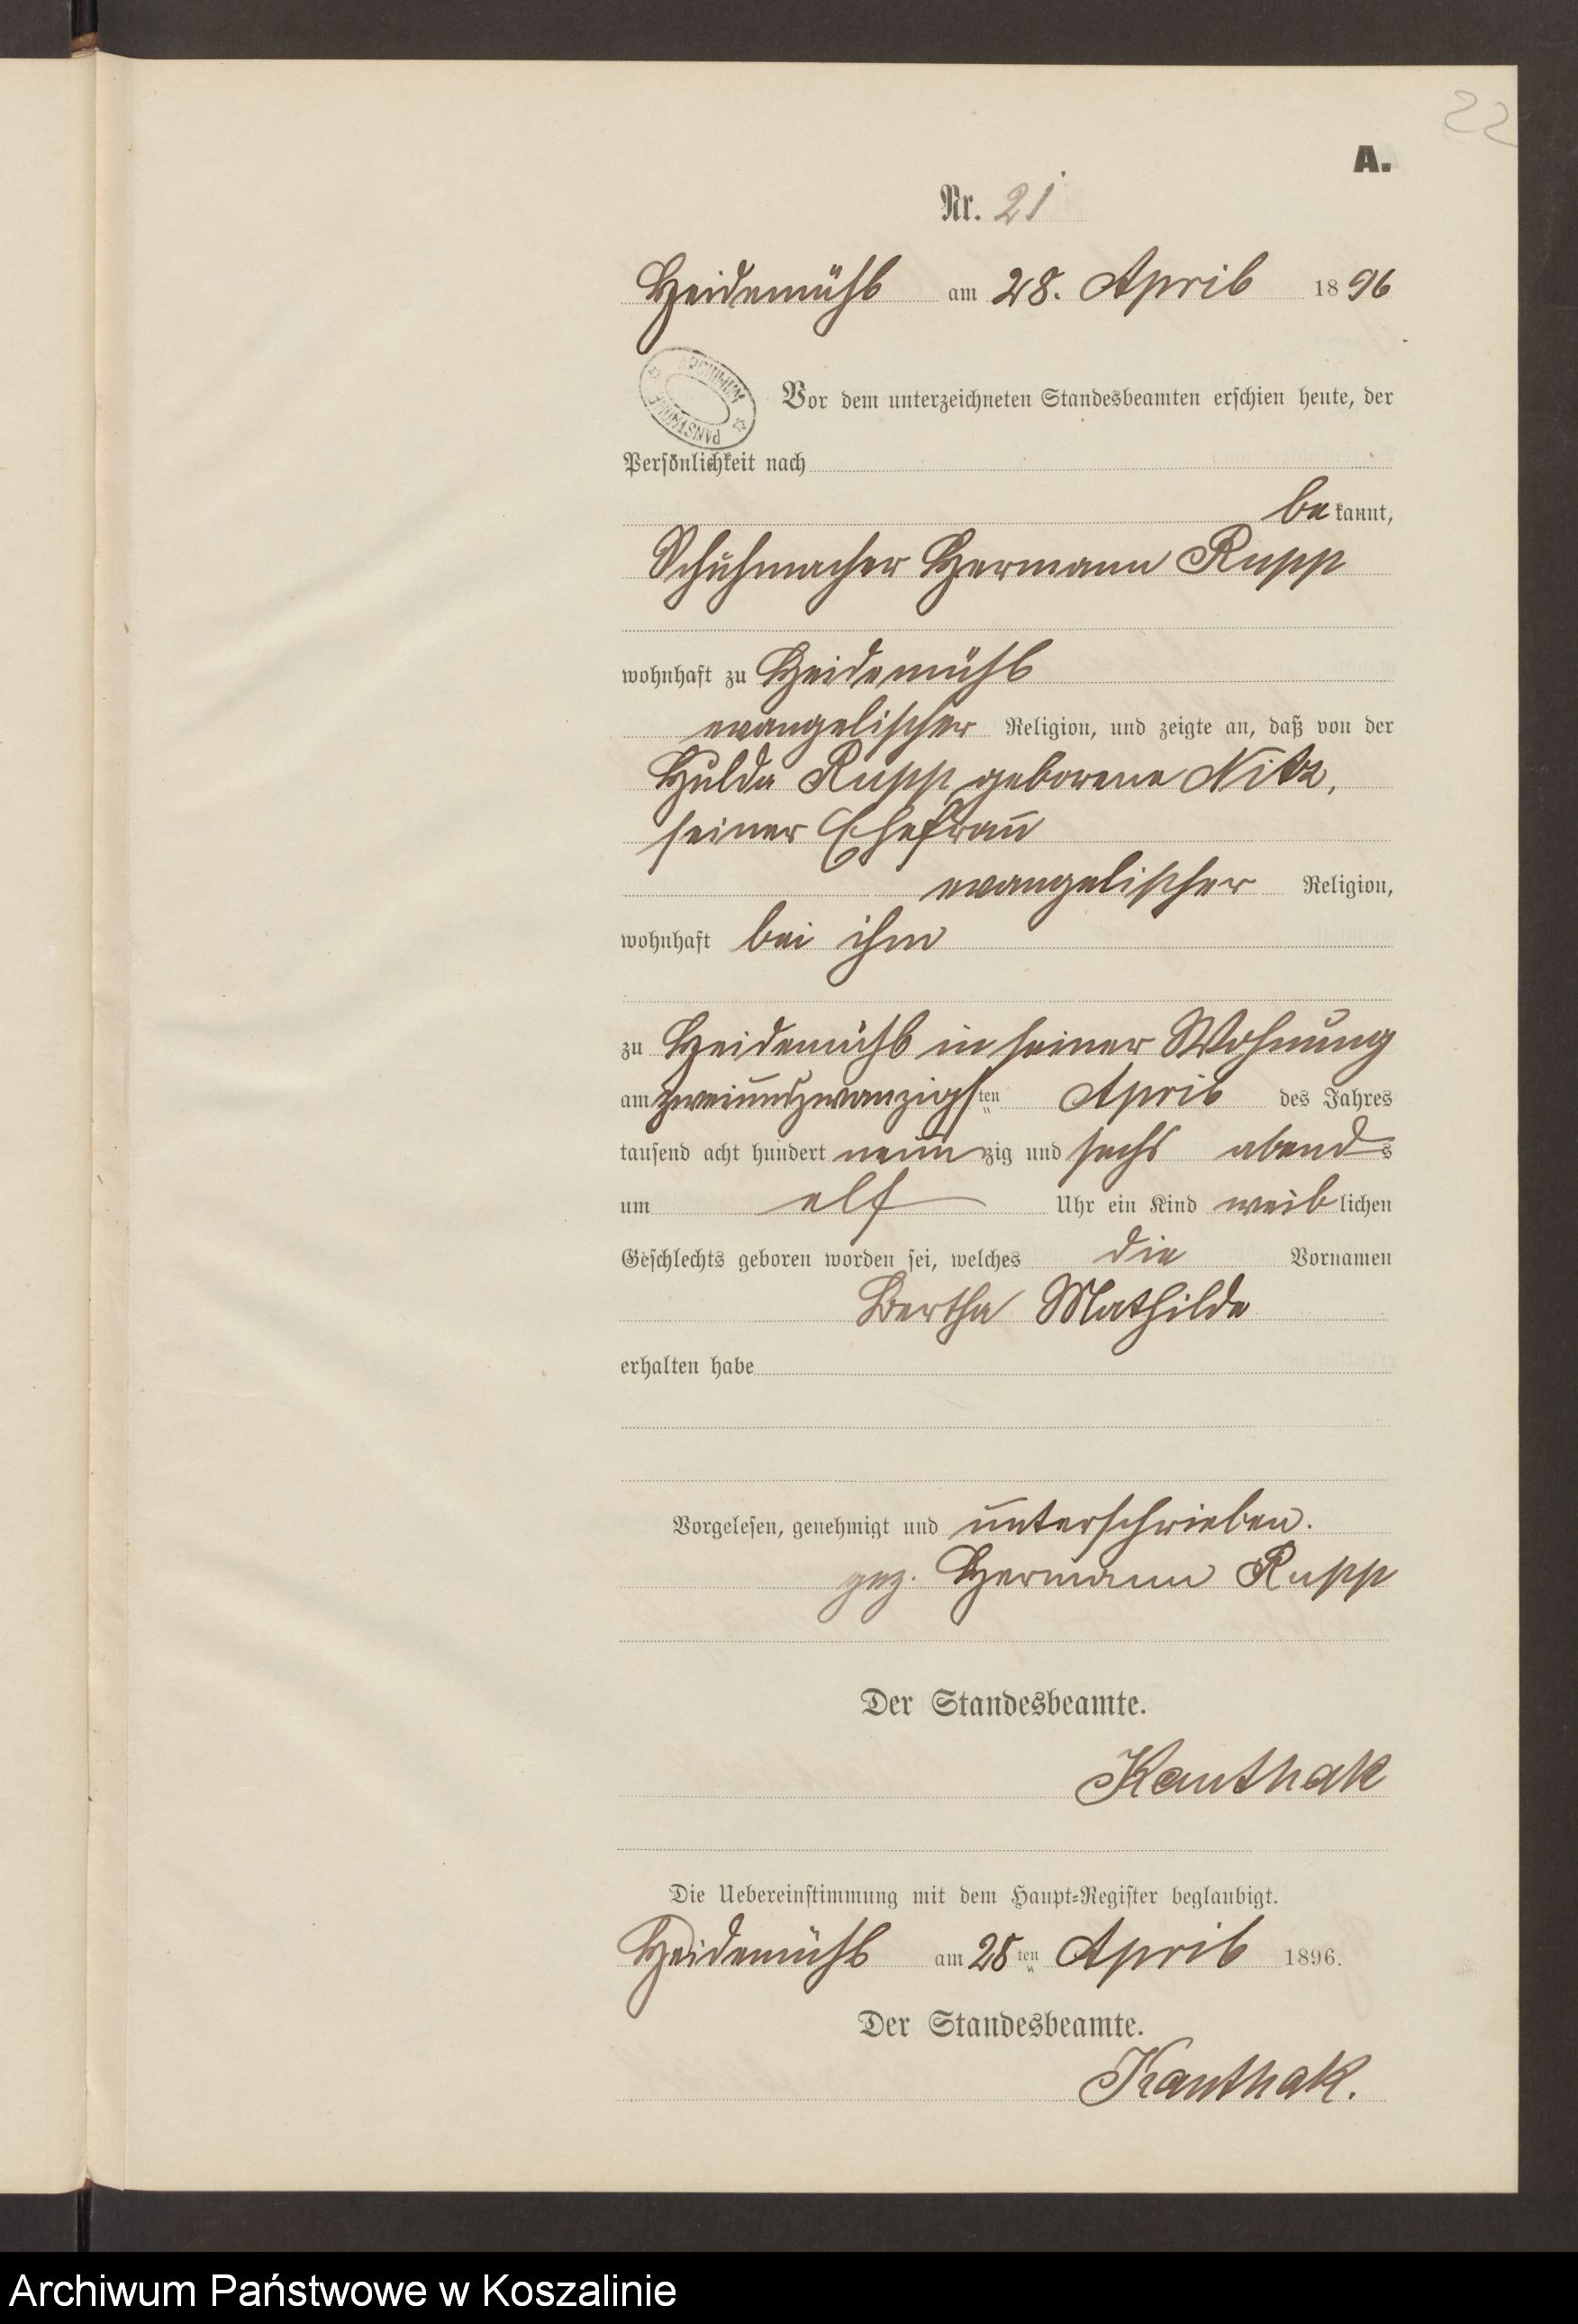 22
A.
Nr. 21
Heidemühl am 28. April 1896
ARCHIWUM PAŃSTWOWE
Vor dem unterzeichneten Standesbeamten erschien heute, der
Persönlichkeit nach
bekannt,
Schuhmacher Hermann Rupp
wohnhaft zu Heidemühl
evangelischer Religion, und zeigte an, daß von der
Hulda Rupp geborene Nitz,
seiner Ehefrau
evangelischer Religion,
wohnhaft bei ihm
zu Heidemühl in seiner Wohnung
am zweiundzwanzigsten April des Jahres
tausend acht hundert neunzig und sechs abends
um elf Uhr ein Kind weiblichen
Geschlechts geboren worden sei, welches die Vornamen
Bertha Mathilde
erhalten habe
Vorgelesen, genehmigt und unterschrieben.
gez. Hermann Rupp
Der Standesbeamte.
Kanthak
Die Uebereinstimmung mit dem Haupt-Register beglaubigt.
Heidemühl am 28ten April 1896.
Der Standesbeamte.
Kanthak.
Archiwum Państwowe w Koszalinie